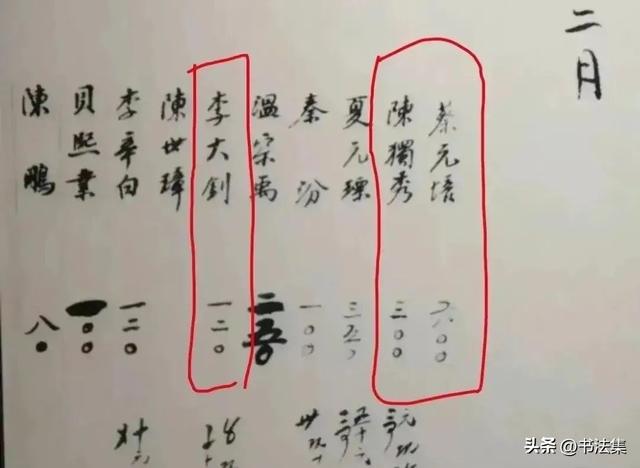 二月
蔡元培 六〇〇
陳獨秀 三〇〇
夏元瑮 三五〇
秦汾 一〇〇
溫宗禹 二五〇
李大釗 一二〇
陳世璋
李辛白 一二〇
貝熙業 一〇〇
陳鵬 八〇
头条 @书法集